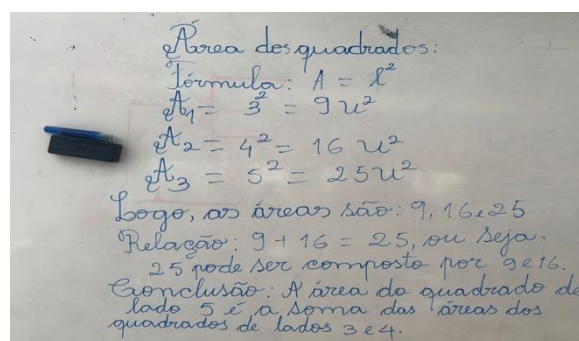 Área dos quadrados:
Fórmula: A = l²
A₁ = 3² = 9 u²
A₂ = 4² = 16 u²
A₃ = 5² = 25 u²
Logo, as áreas são: 9, 16 e 25
Relação: 9 + 16 = 25, ou seja.
25 pode ser composto por 9 e 16.
Conclusão: A área do quadrado de
lado 5 é a soma das áreas dos
quadrados de lados 3 e 4.